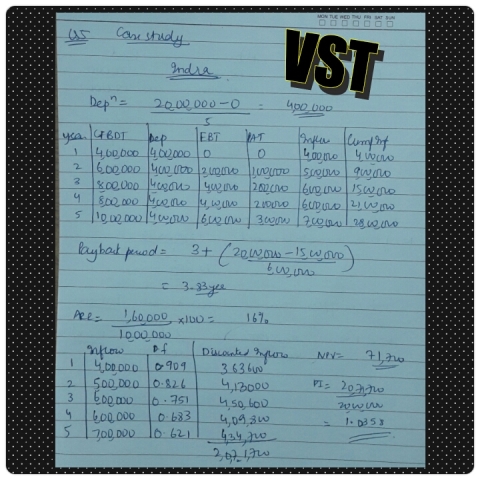 MON TUE WED THU FRI SAT SUN
Q5 Case study
VST
Indra
Depⁿ = 20,00,000 – 0 / 5 = 400,000
year CFBDT Dep EBT PAT Inflow Cum Inf
1 4,00,000 400,000 0 0 400,000 400,000
2 6,00,000 400,000 200,000 100,000 500,000 900,000
3 800,000 400,000 400,000 200,000 600,000 1500,000
4 800,000 400,000 400,000 200,000 600,000 21,00,000
5 10,00,000 400,000 600,000 300,000 700,000 2800,000
Payback period = 3 + (2000,000 – 1500,000 / 600,000)
= 3.33 year
ARR = 1,60,000 / 1000,000 × 100 = 16%
Inflow Df Discounted Inflow NPV = 71,700
1 4,00,000 0.909 3 63 600
2 500,000 0.826 4,13000 PI = 2071700 / 2000000
3 600,000 0.751 4,50,600
4 600,000 0.683 4,09,800 = 1.0358
5 700,000 0.621 434,700
2,071,700